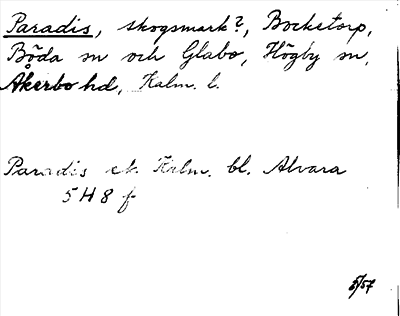 Paradis, skogsmark?, Bocketorp,
Böda sn och Glabo, Högby sn,
Åkerbo hd, Kalm. l.
Paradis ek. Kalm. bl. Alvara
5 H 8 f
5/57